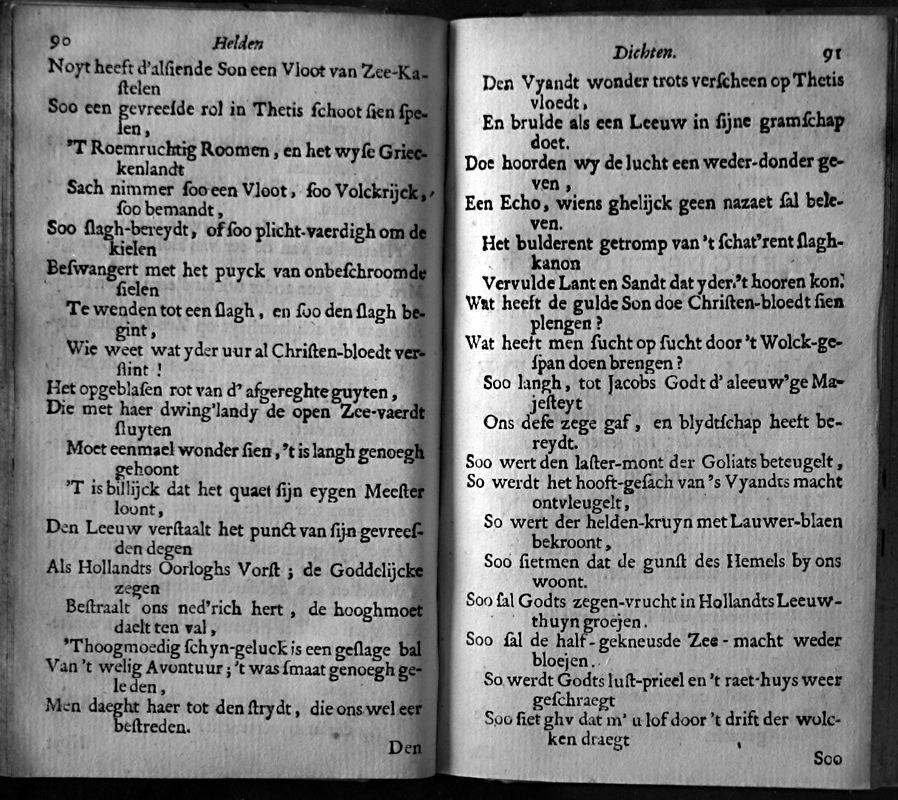 90 Helden
Noyt heeft d'alſiende Son een Vloot van Zee-Ka-
ſtelen
Soo een gevreeſde rol in Thetis ſchoot ſien ſpe-
len,
'T Roemruchtig Roomen, en het wyſe Griec-
kenlandt
Sach nimmer ſoo een Vloot, ſoo Volckrijck,
ſoo bemandt,
Soo ſlagh-bereydt, of ſoo plicht-vaerdigh om de
kielen
Beſwangert met het puyck van onbeſchroomde
ſielen
Te wenden tot een ſlagh, en ſoo den ſlagh be-
gint,
Wie weet wat yder uur al Chriſten-bloedt ver-
ſlint !
Het opgeblaſen rot van d' afgereghte guyten,
Die met haer dwing'landy de open Zee-vaerdt
ſluyten
Moet eenmael wonder ſien, 't is langh genoegh
gehoont
'T is billijck dat het quaet ſijn eygen Meeſter
loont,
Den Leeuw verſtaalt het punct van ſijn gevreeſ-
den degen
Als Hollandts Oorloghs Vorſt ; de Goddelijcke
zegen
Beſtraalt ons ned'rich hert, de hooghmoet
daelt ten val,
'Thoogmoedig ſchyn-geluck is een geſlage bal
Van 't welig Avontuur ; 't was ſmaat genoegh ge-
leden,
Men daeght haer tot den ſtrydt, die ons wel eer
beſtreden.
Den
Dichten. 91
Den Vyandt wonder trots verſcheen op Thetis
vloedt,
En brulde als een Leeuw in ſijne gramſchap
doet.
Doe hoorden wy de lucht een weder-donder ge-
ven,
Een Echo, wiens ghelijck geen nazaet ſal bele-
ven.
Het bulderent getromp van 't ſchat'rent ſlagh-
kanon
Vervulde Lant en Sandt dat yder 't hooren kon:
Wat heeft de gulde Son doe Chriſten-bloedt ſien
plengen ?
Wat heeft men ſucht op ſucht door 't Wolck-ge-
ſpan doen brengen ?
Soo langh, tot Jacobs Godt d' aleeuw'ge Ma-
jeſteyt
Ons deſe zege gaf, en blydtſchap heeft be-
reydt.
Soo wert den laſter-mont der Goliats beteugelt,
So werdt het hooft-geſach van 's Vyandts macht
ontvleugelt,
So wert der helden-kruyn met Lauwer-blaen
bekroont,
Soo ſietmen dat de gunſt des Hemels by ons
woont.
Soo ſal Godts zegen-vrucht in Hollandts Leeuw-
thuyn groejen.
Soo ſal de half-gekneusde Zee-macht weder
bloejen.
So werdt Godts luſt-prieel en 't raet-huys weer
geſchraegt
Soo ſiet ghy dat m' u lof door 't drift der wolc-
ken draegt
Soo